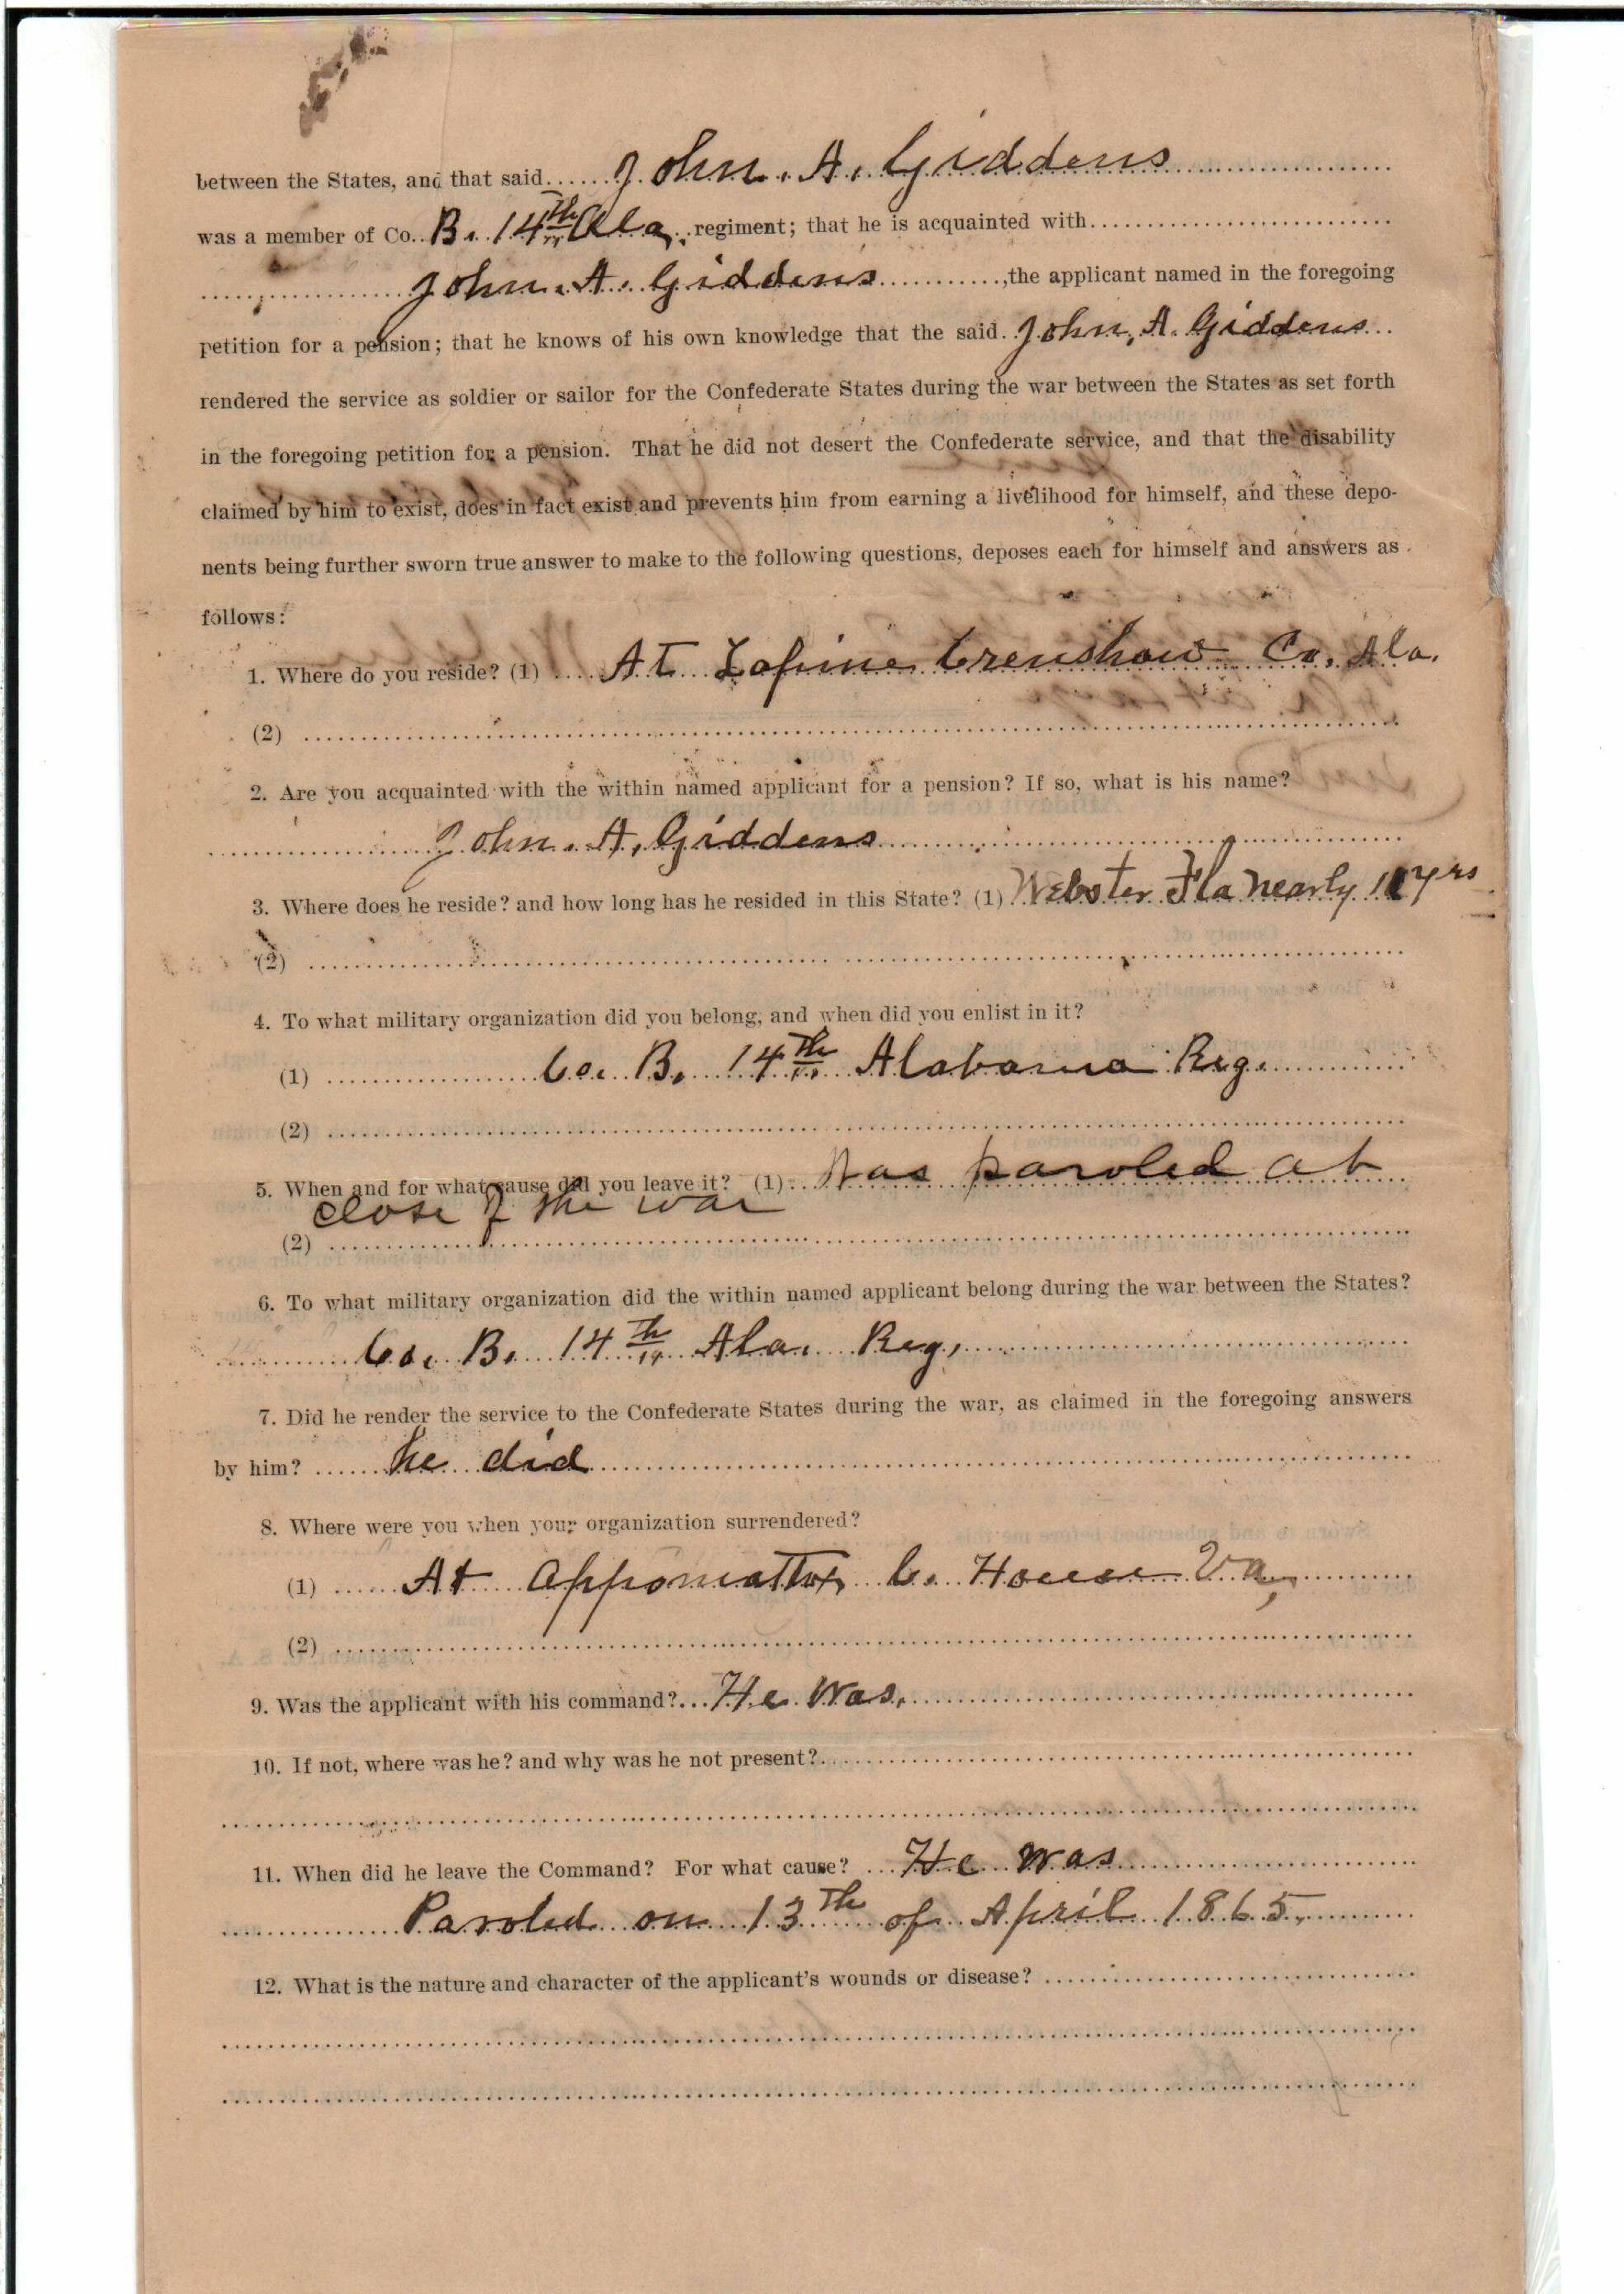 between the States, and that said John. A. Giddens
was a member of Co. B. 14th Ala. regiment; that he is acquainted with
John. A. Giddens, the applicant named in the foregoing
petition for a pension; that he knows of his own knowledge that the said John. A. Giddens
rendered the service as soldier or sailor for the Confederate States during the war between the States as set forth
in the foregoing petition for a pension. That he did not desert the Confederate service, and that the disability
claimed by him to exist, does in fact exist and prevents him from earning a livelihood for himself, and these depo-
nents being further sworn true answer to make to the following questions, deposes each for himself and answers as
follows:
1. Where do you reside? (1) At Lapine Crenshaw Co, Ala.
(2)
2. Are you acquainted with the within named applicant for a pension? If so, what is his name?
John. A. Giddens
3. Where does he reside? and how long has he resided in this State? (1) Webster Fla nearly yrs
(2)
4. To what military organization did you belong, and when did you enlist in it?
(1) Co. B. 14th Alabama Reg.
(2)
5. When and for what cause did you leave it? (1) Was paroled at
close of the war
(2)
6. To what military organization did the within named applicant belong during the war between the States?
Co. B. 14th Ala. Reg.
7. Did he render the service to the Confederate States during the war, as claimed in the foregoing answers
by him? he did
8. Where were you when your organization surrendered?
(1) At Appomattox C. House Va,
(2)
9. Was the applicant with his command? He Was.
10. If not, where was he? and why was he not present?
11. When did he leave the Command? For what cause? He was
Paroled on 13th of April 1865.
12. What is the nature and character of the applicant's wounds or disease?